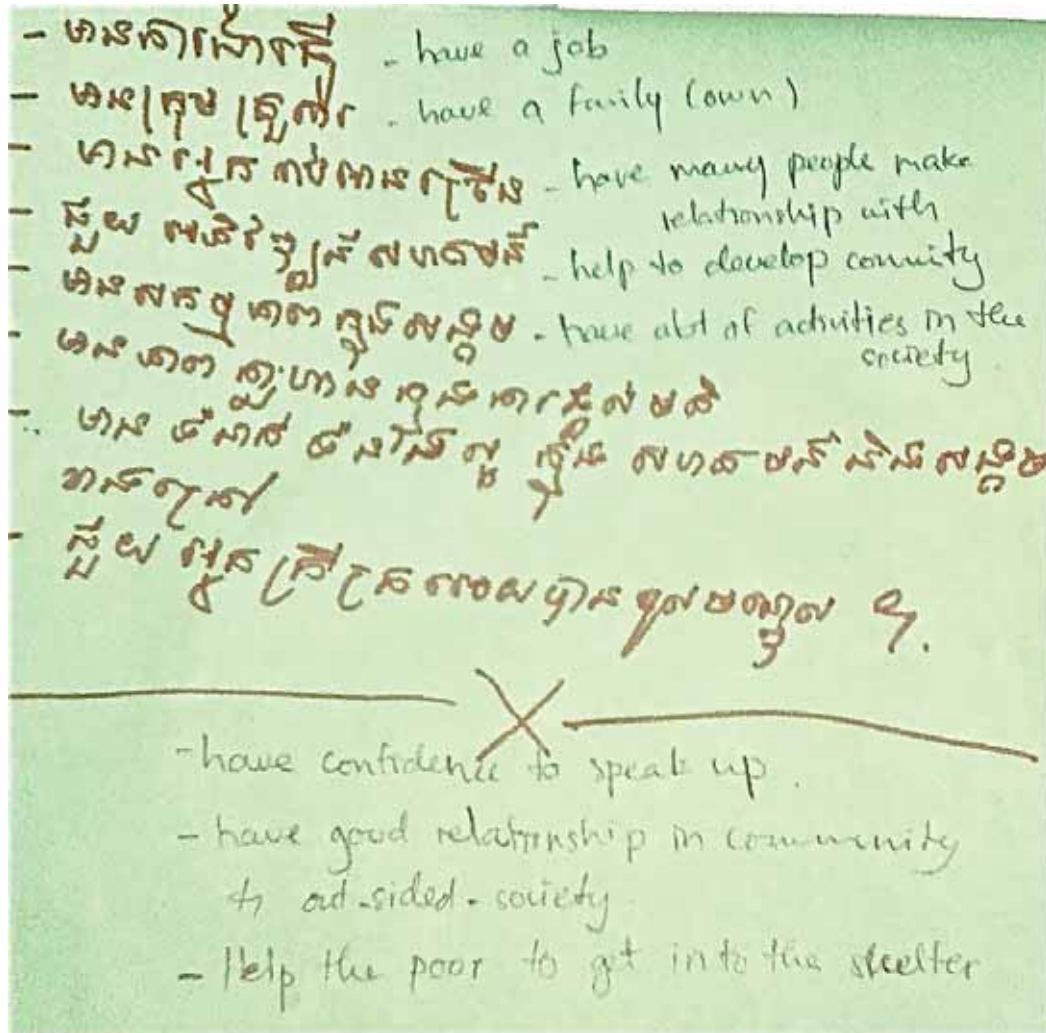 - មានការងារធ្វើ - have a job
- មានក្រុមគ្រួសារ - have a family (own)
- មានអ្នករាប់អានច្រើន - have many people make
relationship with
- ជួយអភិវឌ្ឍន៍សហគមន៍ - help to develop comunity
- មានសកម្មភាពក្នុងសង្គម - have alot of activities in the
society
- មានភាពក្លាហានក្នុងការផ្ដល់មតិ
- មានទំនាក់ទំនងល្អ ក្នុង សហគមន៍ និងសង្គម
ខាងក្រៅ
- ជួយ អ្នកក្រីក្រ អោយបានចូលមណ្ឌល ។
- have confidence to speak up.
- have good relationship in community
& out-sided-society
- Help the poor to get into the shelter